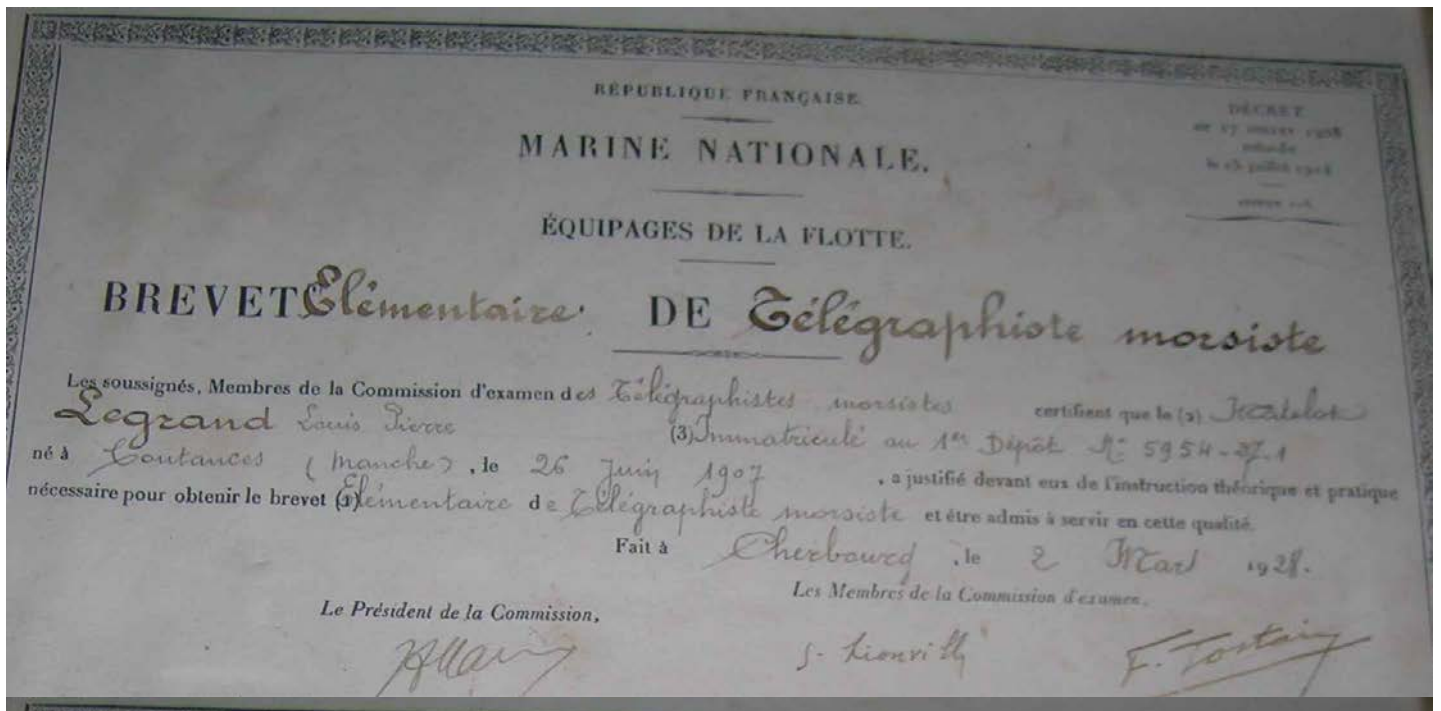 RÉPUBLIQUE FRANÇAISE.
MARINE NATIONALE.
ÉQUIPAGES DE LA FLOTTE.
DÉCRET
BREVET Elémentaire. DE Télégraphiste morsiste
Les soussignés, Membres de la Commission d'examen des Télégraphistes morsistes certifient que le (2) Matelot
Legrand Louis Pierre (3) Immatriculé au 1er Dépôt No 5954-37.1
né à Coutances (Manche), le 26 Juin 1907, a justifié devant eux de l'instruction théorique et pratique
nécessaire pour obtenir le brevet (1) Elémentaire de Télégraphiste morsiste et être admis à servir en cette qualité.
Fait à Cherbourg, le 2 Mars 1928.
Le Président de la Commission,
Les Membres de la Commission d'examen.
F. Tostain